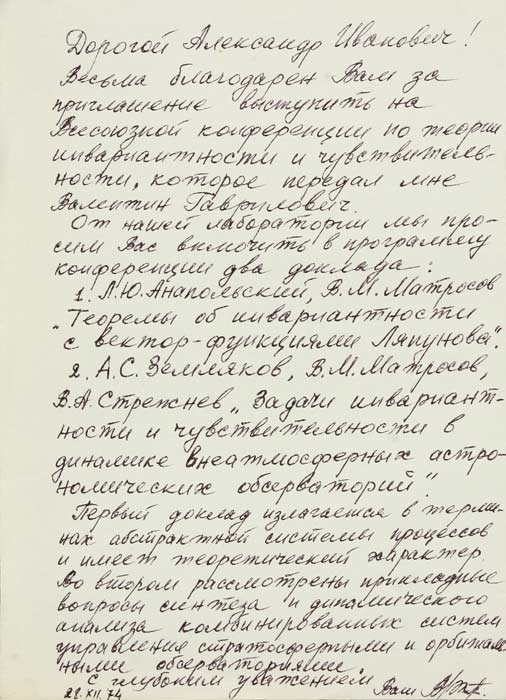 Дорогой Александр Иванович!
Весьма благодарен Вам за
приглашение выступить на
Всесоюзной конференции по теории
инвариантности и чувствитель-
ности, которое передал мне
Валентин Гаврилович.
От нашей лаборатории мы про-
сим Вас включить в программу
конференции два доклада:
1. Л.Ю. Анапольский, В.М. Матросов
„Теоремы об инвариантности
с вектор-функциями Ляпунова".
2. А.С. Земляков, В.М. Матросов,
В.А. Стрежнев „Задачи инвариант-
ности и чувствительности в
динамике внеатмосферных астро-
номических обсерваторий".
Первый доклад излагается в терми-
нах абстрактной системы процессов
и имеет теоретический характер.
Во втором рассмотрены прикладные
вопросы синтеза и динамического
анализа комбинированных систем
управления стратосферными и орбиталь-
ными обсерваториями.
С глубоким уважением Ваш
28.XII.74